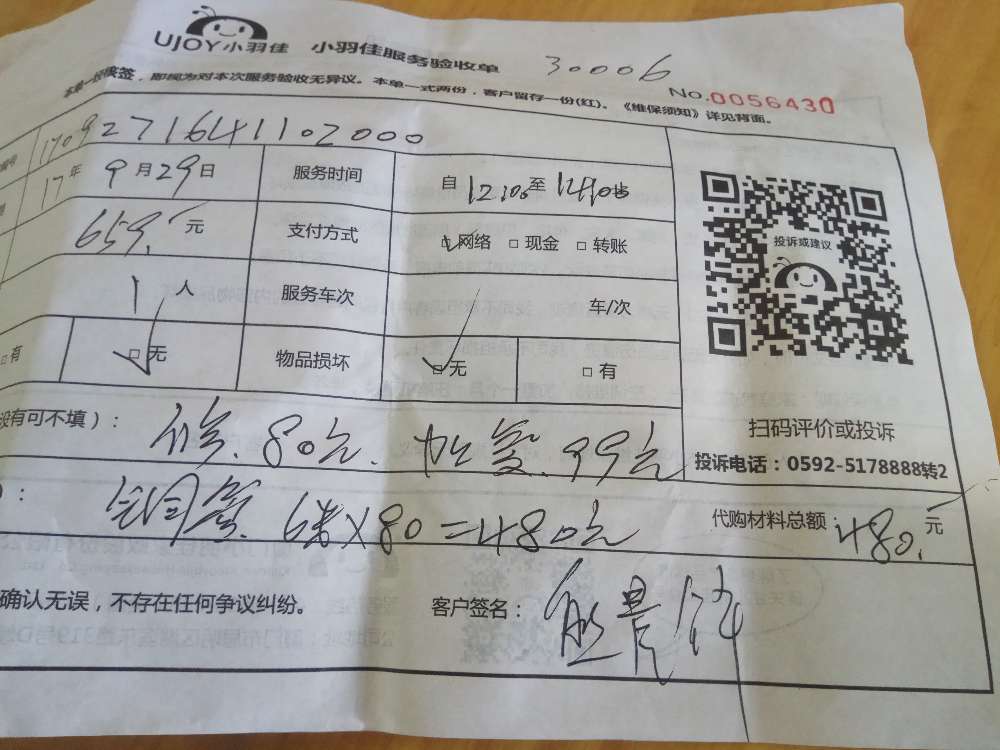 UJOY小羽佳 小羽佳服务验收单 30006
No.0056430
本单一经签,即视为对本次服务验收无异议。本单一式两份,客户留存一份(红)。《维保须知》详见背面。
1709271641102000
17年9月29日 服务时间 自 至
659.元 支付方式 网络 □现金 □转账
1人 服务车次 车/次
□有 □无 物品损坏 □无 □有
投诉或建议
扫码评价或投诉
投诉电话:0592-5178888转2
没有可不填):
80元. 加 99元
铜 6米X80=480元 代购材料总额:480.元
确认无误,不存在任何争议纠纷。 客户签名: